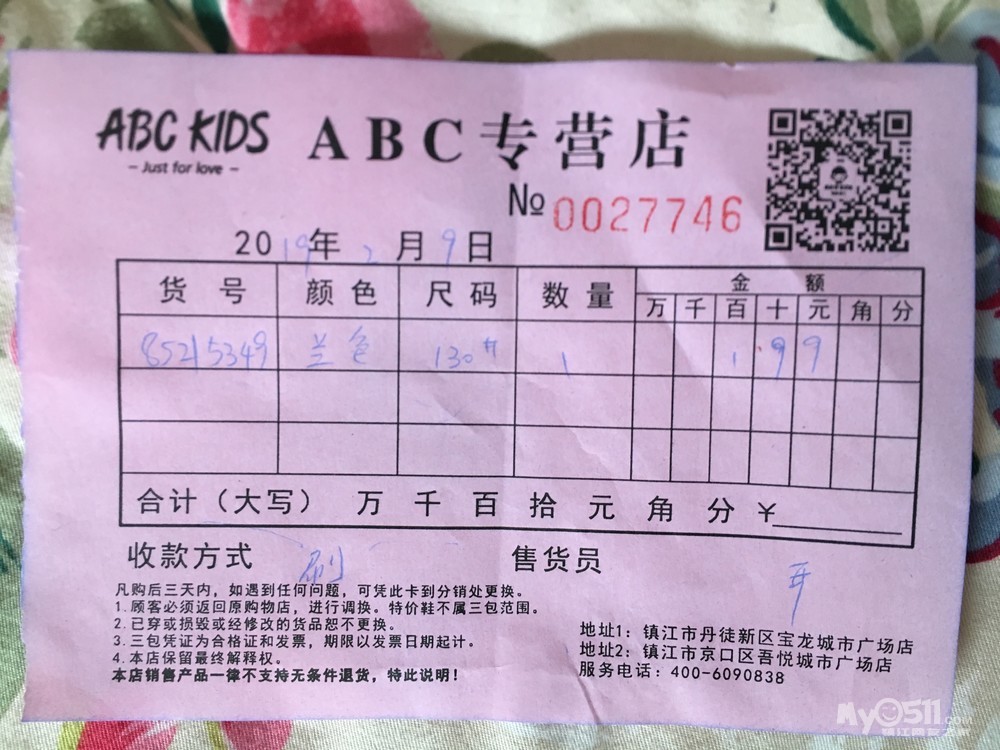 ABC KIDS ABC专营店
- Just for love -
№ 0027746
2019年2月9日
货号 颜色 尺码 数量 金额
万 千 百 十 元 角 分
85215349 兰色 130# 1 1 9 9
合计（大写） 万 千 百 拾 元 角 分 ¥
收款方式 刷 售货员
凡购后三天内，如遇到任何问题，可凭此卡到分销处更换。
1.顾客必须返回原购物店，进行调换。特价鞋不属三包范围。
2.已穿或损毁或经修改的货品恕不更换。
3.三包凭证为合格证和发票，期限以发票日期起计。
4.本店保留最终解释权。
本店销售产品一律不支持无条件退货，特此说明！
地址1：镇江市丹徒新区宝龙城市广场店
地址2：镇江市京口区吾悦城市广场店
服务电话：400-6090838
My0511.COM